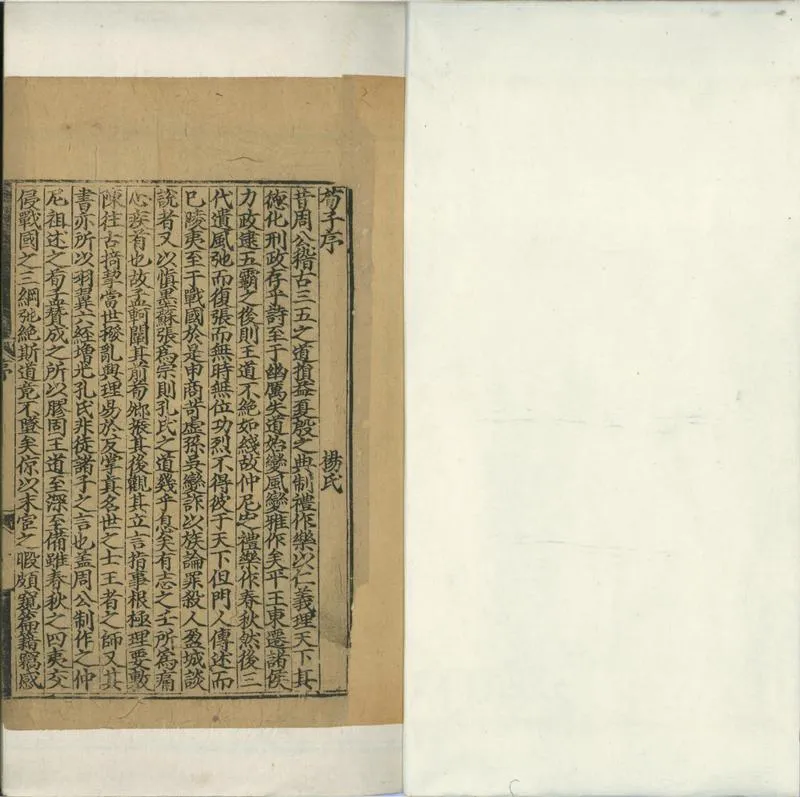 荀子序
楊氏
昔周公稽古三五之道損益夏殷之典制禮作樂以仁義理天下其
德化刑政存乎詩至于幽厲失道始變風變雅作矣平王東遷諸侯
力政逮五霸之後則王道不絕如綫故仲尼定禮樂作春秋然後三
代遺風弛而復張而無時無位功烈不得被于天下但門人傳述而
已陵夷至于戰國於是申商苛虐孫吳變詐以族論罪殺人盈城談
說者又以慎墨蘇張爲宗則孔氏之道幾乎息矣有志之士所爲痛
心疾首也故孟軻闢其前荀卿振其後觀其立言指事根極理要敷
陳往古掎挈當世撥亂興理易於反掌真名世之士王者之師又其
書亦所以羽翼六經增光孔氏非徒諸子之言也盖周公制作之仲
尼祖述之荀孟賛成之所以膠固王道至深至備雖春秋之四夷交
侵戰國之三綱弛絕斯道竟不墜矣倞以末宦之暇頗窺篇籍竊感
序